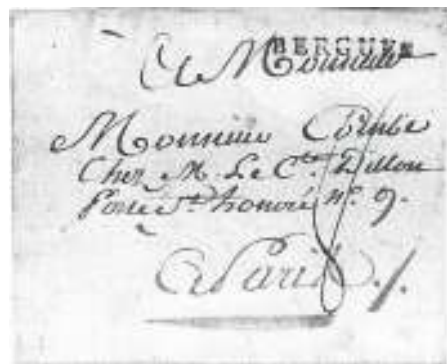 BERGUES
A Monsieur
Monsieur
Chez M. Le Cte. Dillon
Porte St. honoré n°. 9.
A Paris